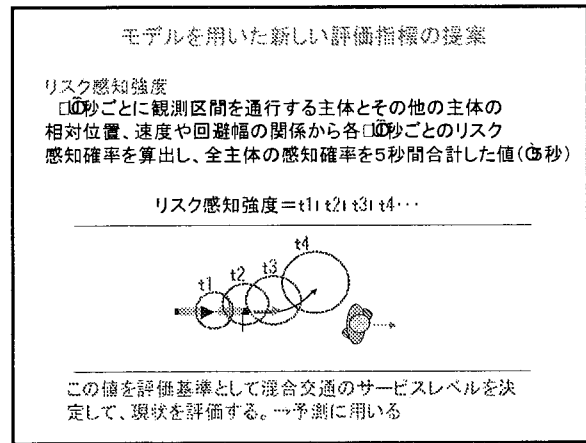 モデルを用いた新しい評価指標の提案
リスク感知強度
秒ごとに観測区間を通行する主体とその他の主体の
相対位置、速度や回避幅の関係から各 秒ごとのリスク
感知確率を算出し、全主体の感知確率を5秒間合計した値( 5秒)
リスク感知強度=t1+t2+t3+t4…
t4
t3
t2
t1
この値を評価基準として混合交通のサービスレベルを決
定して、現状を評価する。→予測に用いる